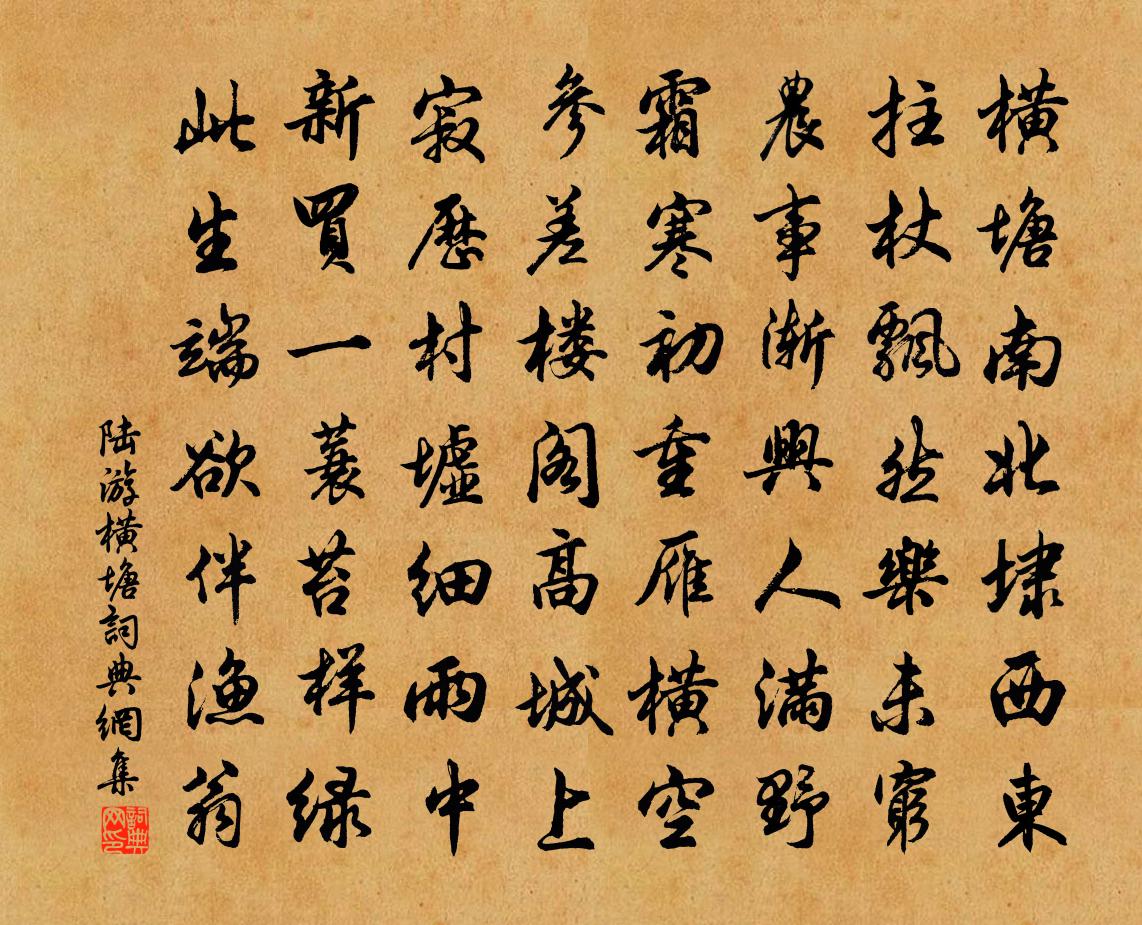 橫塘南北埭西東
拄杖飄然樂未窮
農事漸興人滿野
霜寒初重雁橫空
參差楼阁高城上
寂歷村墟細雨中
新買一蓑苔样绿
此生端欲伴漁翁
陆游橫塘詞典網集
詞典网印